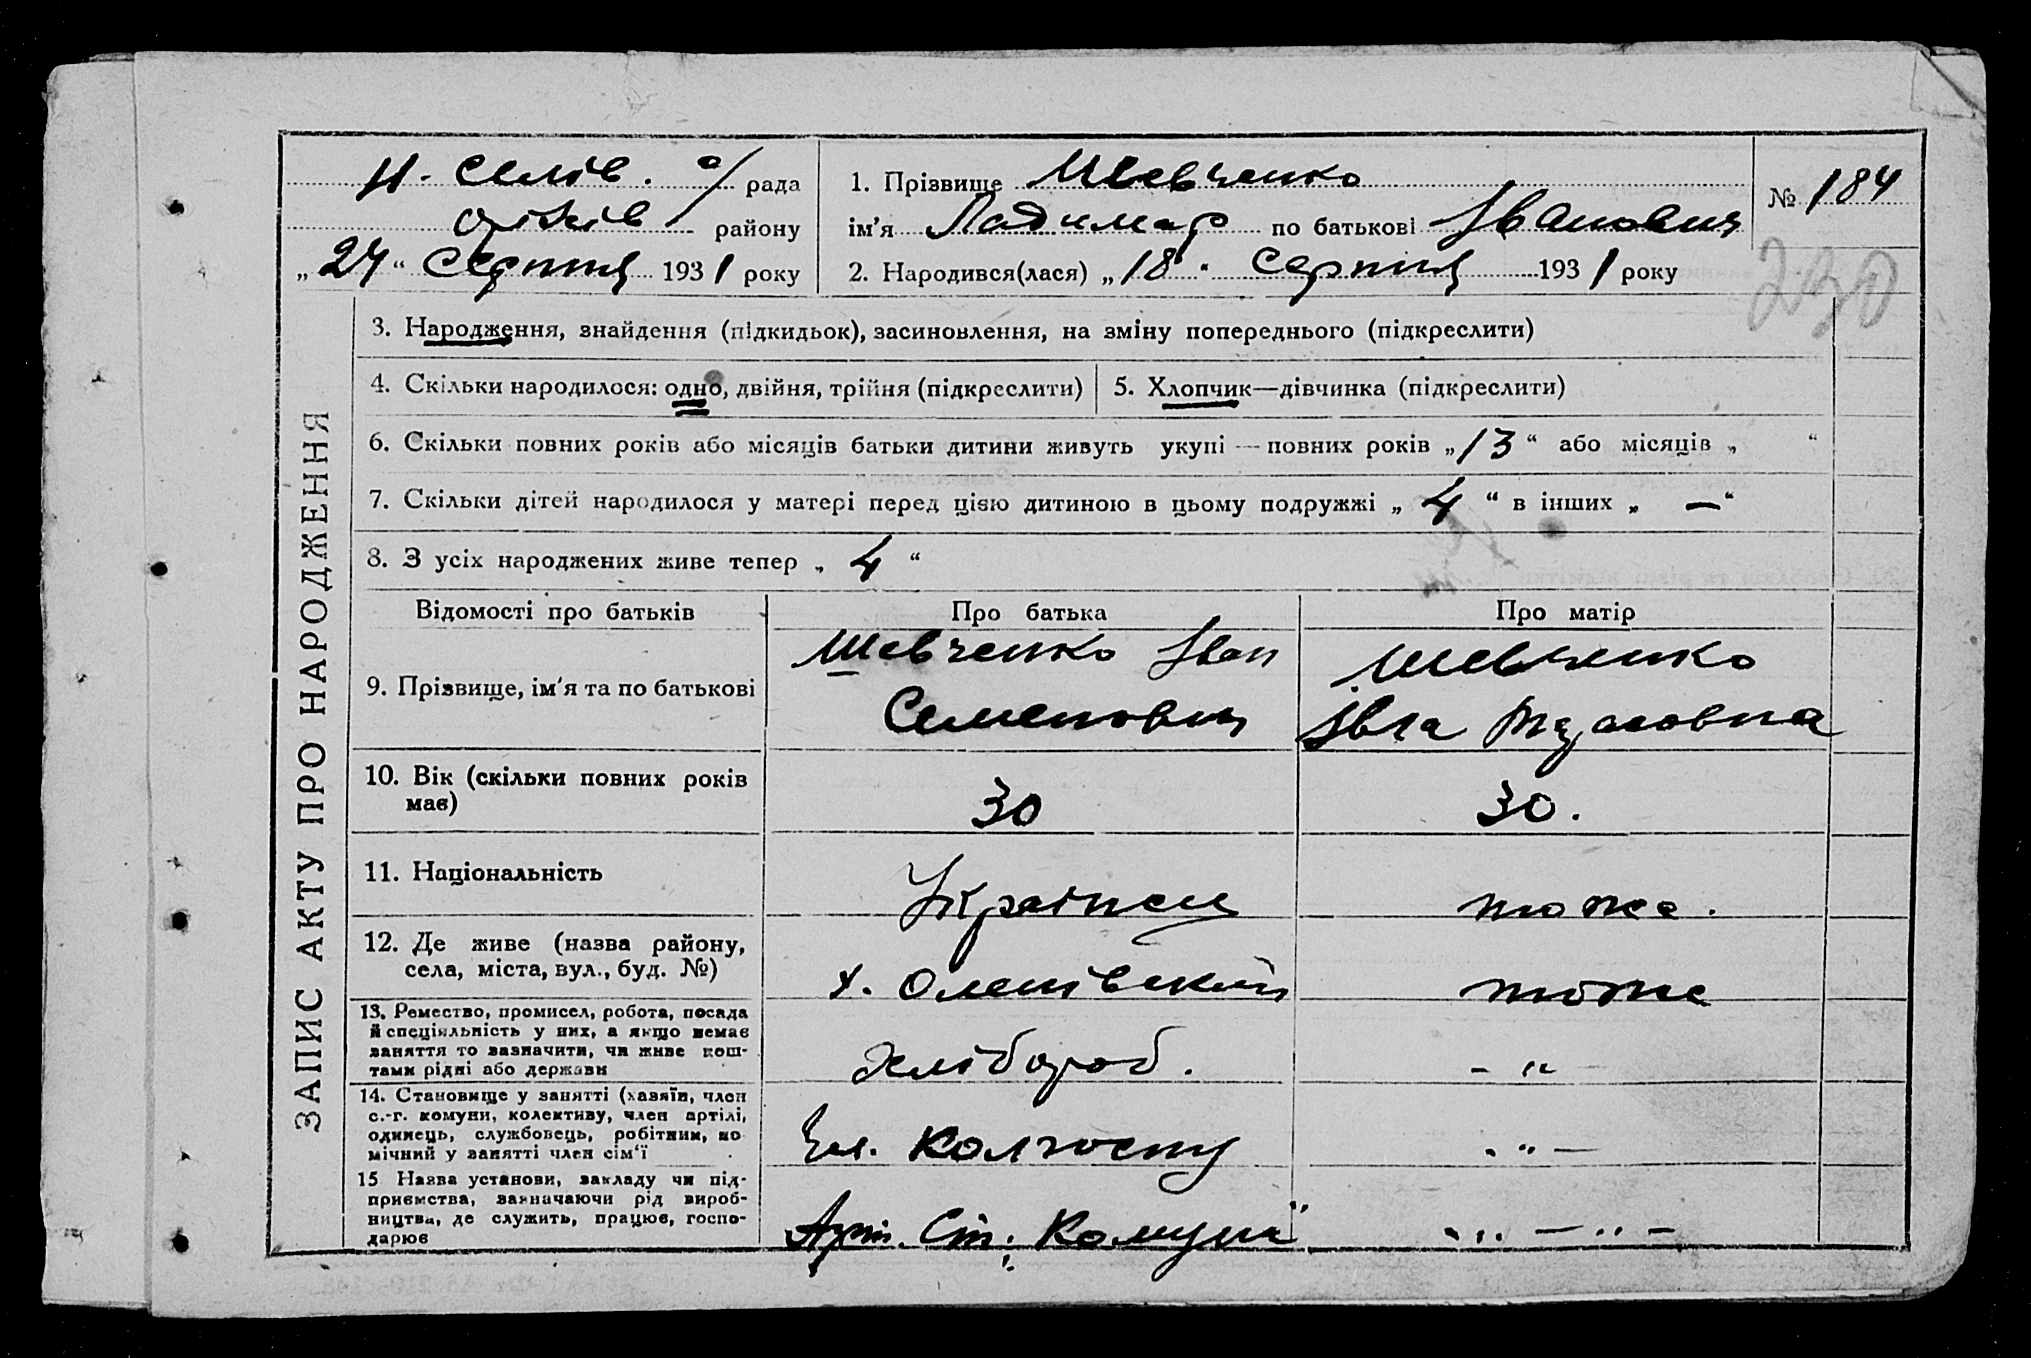 Н. Селів. с/рада
району
„ 24 “ Серпня 1931 року
1. Прізвище Шевченко
ім'я Ладимар по батькові Іванович
2. Народився(лася) „ 18 “ Серпня 1931 року
№ 184
230
ЗАПИС АКТУ ПРО НАРОДЖЕННЯ
3. Народження, знайдення (підкидьок), засиновлення, на зміну попереднього (підкреслити)
4. Скільки народилося: одно, двійня, трійня (підкреслити)
5. Хлопчик—дівчинка (підкреслити)
6. Скільки повних років або місяців батьки дитини живуть укупі — повних років „ 13 “ або місяців „ “
7. Скільки дітей народилося у матері перед цією дитиною в цьому подружжі „ 4 “ в інших „ — “
8. З усіх народжених живе тепер „ 4 “
Відомості про батьків
Про батька
Про матір
9. Прізвище, ім'я та по батькові
Шевченко Іван
Семенович
Шевченко
Івга
10. Вік (скільки повних років
має)
30
30.
11. Національність
Українец
тоже.
12. Де живе (назва району,
села, міста, вул., буд. №)
х. Олешівский
тоже
13. Ремество, промисел, робота, посада
й спеціяльність у них, а якщо немає
заняття то зазначити, чи живе кош-
тами рідні або держави
Хлібороб.
- " -
14. Становище у занятті (хазяїн, член
с.-г. комуни, колективу, член артілі,
одинець, службовець, робітник, по
мічний у занятті член сім'ї
Чл. Колгоспу
- " -
15 Назва установи, закладу чи під-
приємства, зазначаючи рід вироб-
ництва, де служить, працює, госпо-
дарює
Арт. Ст. Комуна"
- " - " -